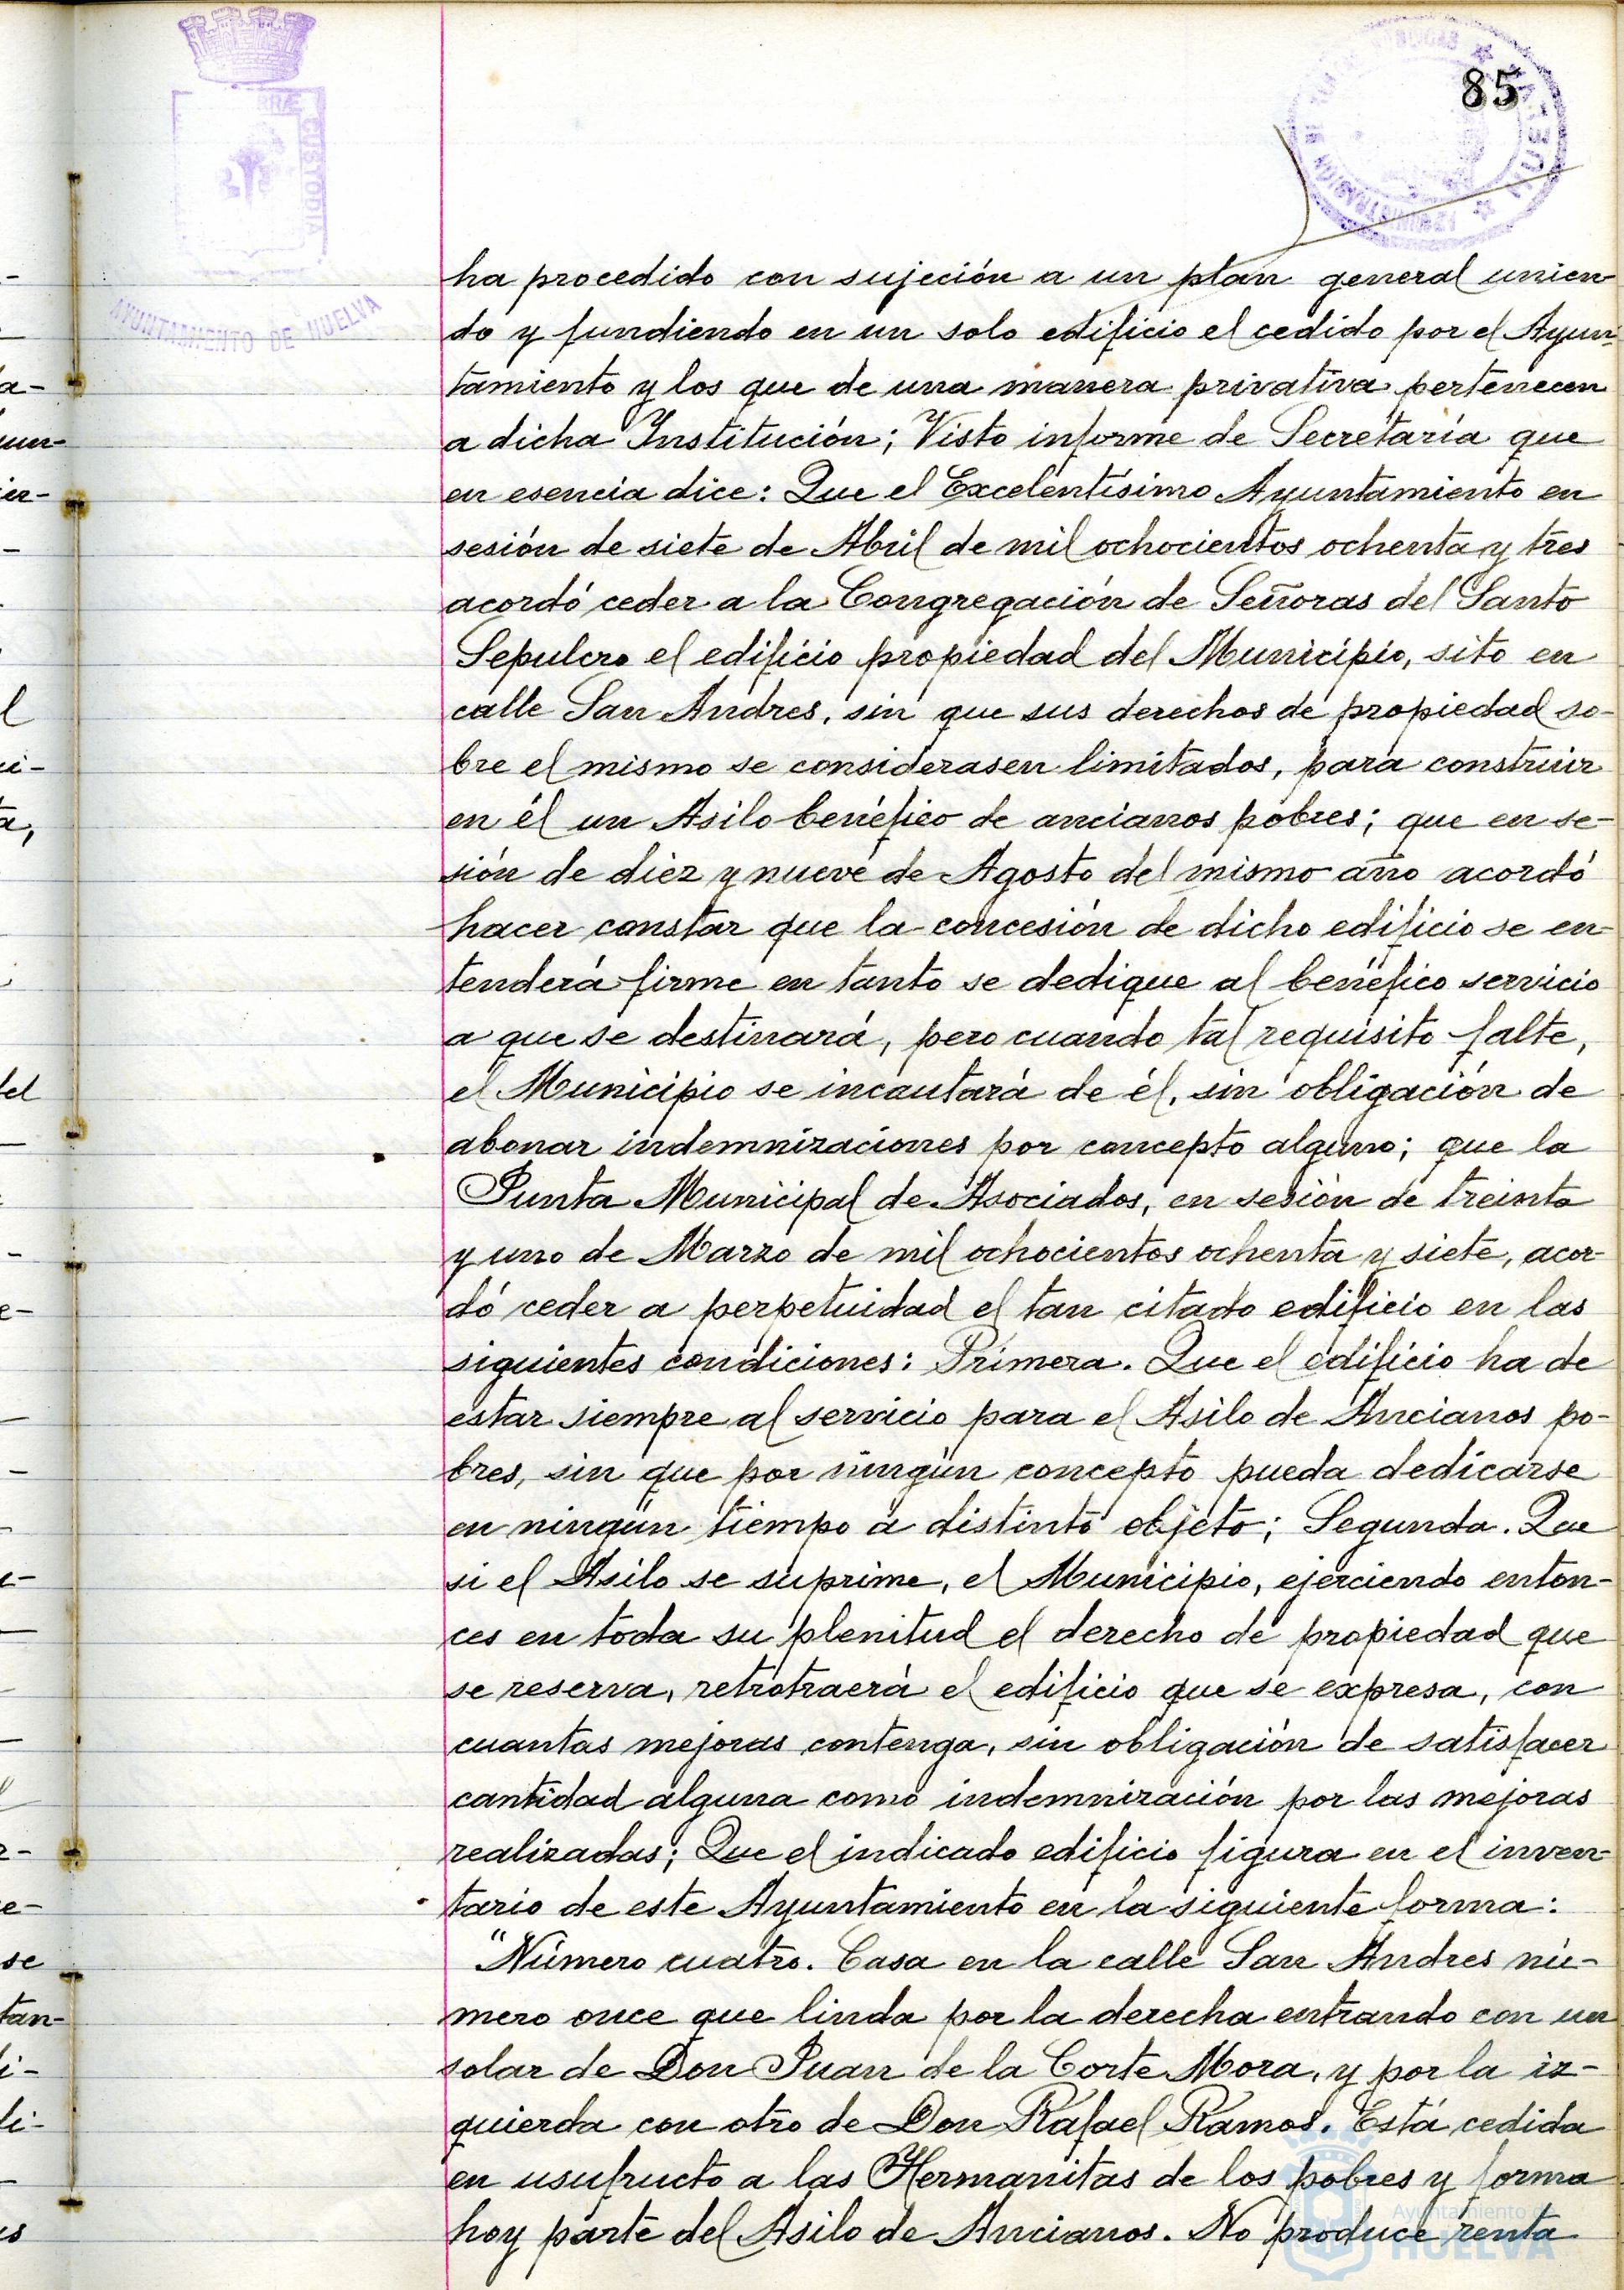 85
RRÆ CUSTODIA
AYUNTAMIENTO DE HUELVA
ha procedido con sujeción a un plan general unien-
do y fundiendo en un solo edificio el cedido por el Ayun-
tamiento y los que de una manera privativa pertenecen
a dicha Institución; Visto informe de Secretaría que
en esencia dice: Que el Excelentísimo Ayuntamiento en
sesión de siete de Abril de mil ochocientos ochenta y tres
acordó ceder a la Congregación de Señoras del Santo
Sepulcro el edificio propiedad del Municipio, sito en
calle San Andres, sin que sus derechos de propiedad so-
bre el mismo se considerasen limitados, para construir
en él un Asilo benéfico de ancianos pobres; que en se-
sión de diez y nueve de Agosto del mismo año acordó
hacer constar que la concesión de dicho edificio se en-
tenderá firme en tanto se dedique al benéfico servicio
a que se destinará, pero cuando tal requisito falte,
el Municipio se incautará de él, sin obligación de
abonar indemnizaciones por concepto alguno; que la
Junta Municipal de Asociados, en sesión de treinta
y uno de Marzo de mil ochocientos ochenta y siete, acor-
dó ceder a perpetuidad el tan citado edificio en las
siguientes condiciones: Primera. Que el edificio ha de
estar siempre al servicio para el Asilo de Ancianos po-
bres, sin que por ningún concepto pueda dedicarse
en ningún tiempo a distinto objeto; Segunda. Que
si el Asilo se suprime, el Municipio, ejerciendo enton-
ces en toda su plenitud el derecho de propiedad que
se reserva, retrotraerá el edificio que se expresa, con
cuantas mejoras contenga, sin obligación de satisfacer
cantidad alguna como indemnización por las mejoras
realizadas; Que el indicado edificio figura en el inven-
tario de este Ayuntamiento en la siguiente forma:
"Número cuatro. Casa en la calle San Andres nú-
mero once que linda por la derecha entrando con un
solar de Don Juan de la Corte Mora, y por la iz-
quierda con otro de Don Rafael Ramos. Está cedida
en usufructo a las Hermanitas de los pobres y forma
hoy parte del Asilo de Ancianos. No produce renta
Ayuntamiento de
HUELVA